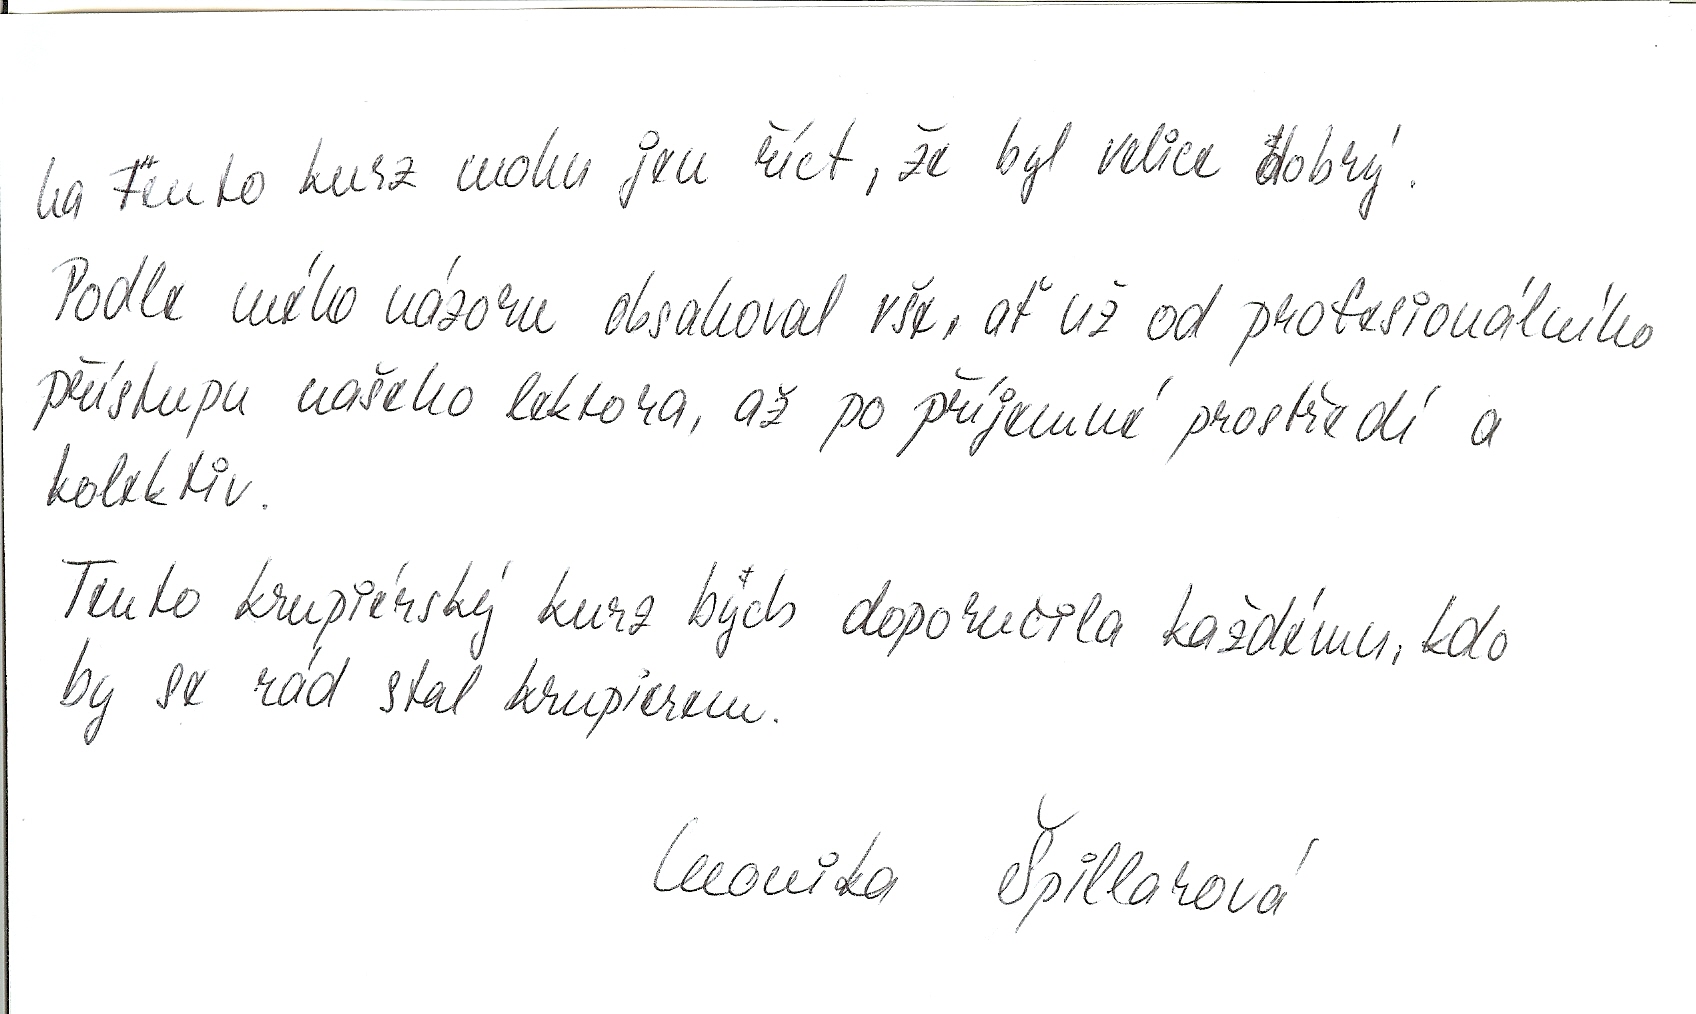 Na Tento kurz mohu jen říct, že byl velice dobrý.
Podle mého názoru obsahoval vše, ať už od profesionálního
přístupu našeho lektora, až po příjemné prostředí a
kolektiv.
Tento krupiérský kurz bych doporučila každému, kdo
by se rád stal krupierem.
Monika Špillarová